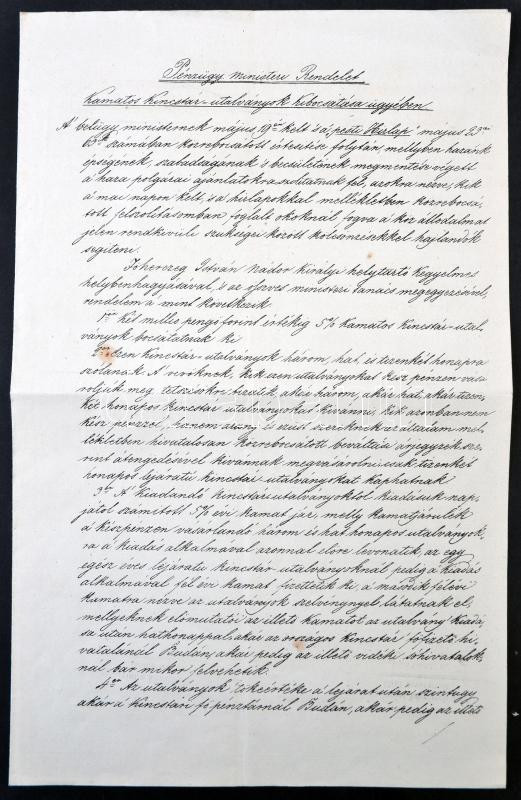 Pénzügy ministeri Rendelet
Kamatos Kincstár-utalványok Kibocsátása ügyében
A belügyministernek május 19én kelt s a „pesti Hirlap" május 23án
65ik számában közrebocsátott értesitése folytán, mellyben hazánk
épségének, szabadságának s becsületének megmentése végett
a haza polgárai ajánlatokra szólitatnak fel, azokra nézve, kik
a mai napon kelt, s a hirlapokkal mellékletben közrebocsá-
tott felszólitásomban foglalt okoknál fogva a köz álladalmat
jelen rendkivüli szükségei között kölcsönzésekkel hajlandók
segiteni.
Főherczeg István Nádor Királyi helytartó Kegyelmes
helybenhagyásával, s az összves ministeri tanács megegyezésével,
rendelem a mint következik
1ör Két millio pengő forint értékig 5% Kamatos Kincstár-utal-
ványok bocsátatnak ki
2or Ezen Kincstár-utalványok három, hat, és tizenkét hónapra
szólanak. A vevőknek, kik ezen utalványokat kész pénzen vásá-
rolják meg tetszésökre bizatik, akár három, akár hat, akár tizen-
két hónapos kincstári utalványokat kivánni, kik azonban nem
kész pénzzel, hanem arany és ezüst szereknek az általam mel-
lékletben hivatalosan közrebocsátott beváltási árjegyzék sze-
rint átengedésével kivánnak megvásárolni, csak tizenkét
hónapos lejáratu kincstári utalványokat kaphatnak
3or A Kiadandó kincstári utalványoktól kiadásuk nap-
jától számitott 5% évi kamat jár, melly kamatjárulék
a készpénzen vásárlandó három és hat hónapos utalványok,
ra a kiadás alkalmával azonnal előre levonatik, az egy
egész éves lejáratu Kincstár-utalványoknál pedig a kiadás
alkalmával fél évi kamat fizettetik ki, a második félévi
kamatra nézve az utalványok szelvénynyel látatnak el,
mellyeknek előmutatói az illető kamatot az utalvány kiadá,
sa után hat hónappal, akár az országos kincstár főfizető hi-
vatalánál Budán, akár pedig az illető vidéki sóhivatalok,
nál bár mikor felvehetik.
4er Az utalványok tőkeértéke a lejárat után szintugy
akár a kincstári fő pénztárnál Budán, akár pedig az illető